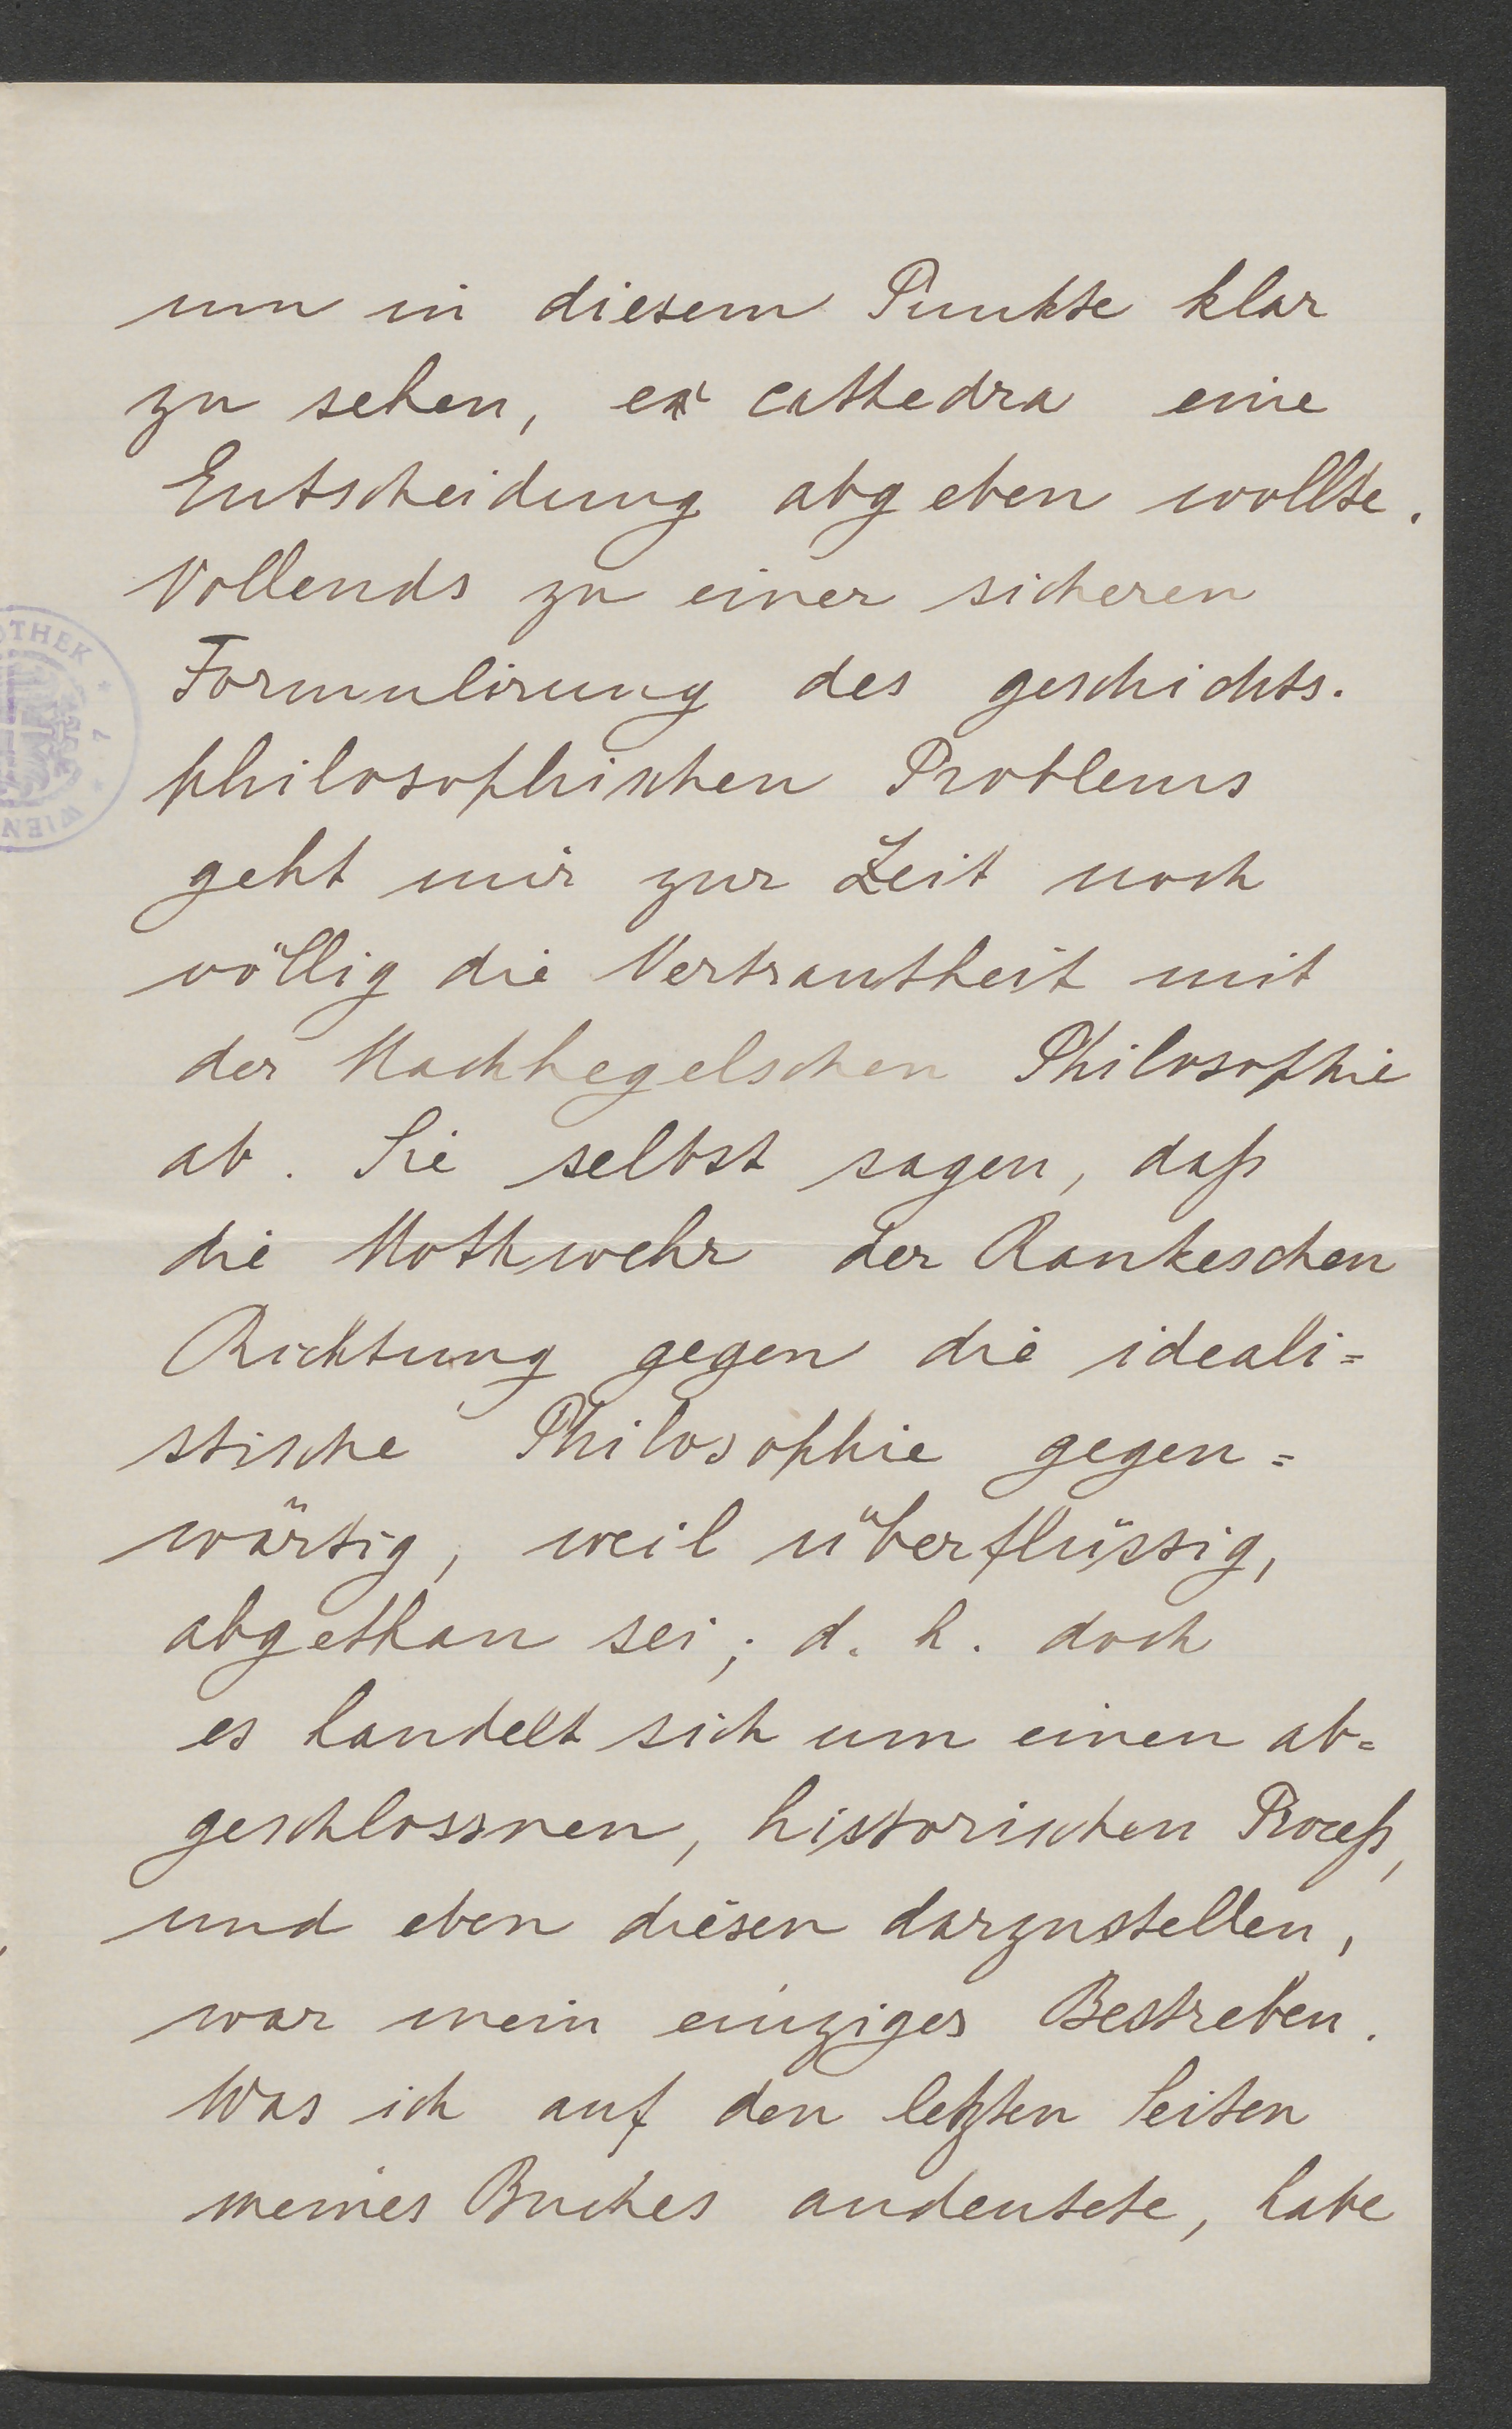 um in diesem Punkte klar
zu sehen, ex cathedra eine
Entscheidung abgeben wollte.
Vollends zu einer sicheren
Formulirung des geschichts-
philosophischen Problems
geht mir zur Zeit noch
völlig die Vertrautheit mit
der Nachhegelschen Philosophie
ab. Sie selbst sagen, daß
die Nothwehr der Rankeschen
Richtung gegen die ideali=
stische Philosophie gegen=
wärtig, weil überflüssig,
abgethan sei; d. h. doch
es handelt sich um einen ab=
geschlossnen, historischen Proceß,
und eben diesen darzustellen,
war mein einziges Bestreben.
Was ich auf den letzten Seiten
meines Buches andeutete, habe
OTHEK * 7 * WIEN